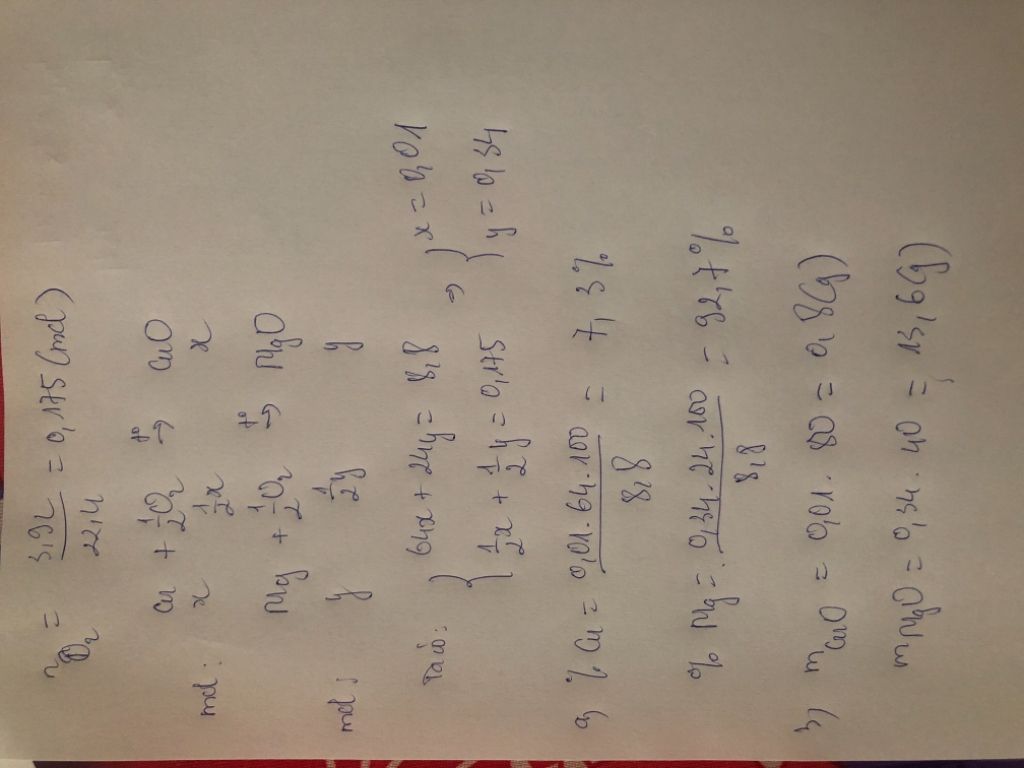 n O₂ = 3,92 / 22,4 = 0,175 (mol)
Cu + 1/2 O₂ →(t°) CuO
mol: x 1/2x x
Mg + 1/2 O₂ →(t°) MgO
mol: y 1/2y y
Ta có: { 64x + 24y = 8,8 ⇒ { x = 0,01
{ 1/2x + 1/2y = 0,175 { y = 0,34
a) % Cu = 0,01.64.100 / 8,8 = 7,3%
% Mg = 0,34.24.100 / 8,8 = 92,7%
b) m CuO = 0,01. 80 = 0,8(g)
m MgO = 0,34. 40 = 13,6(g)